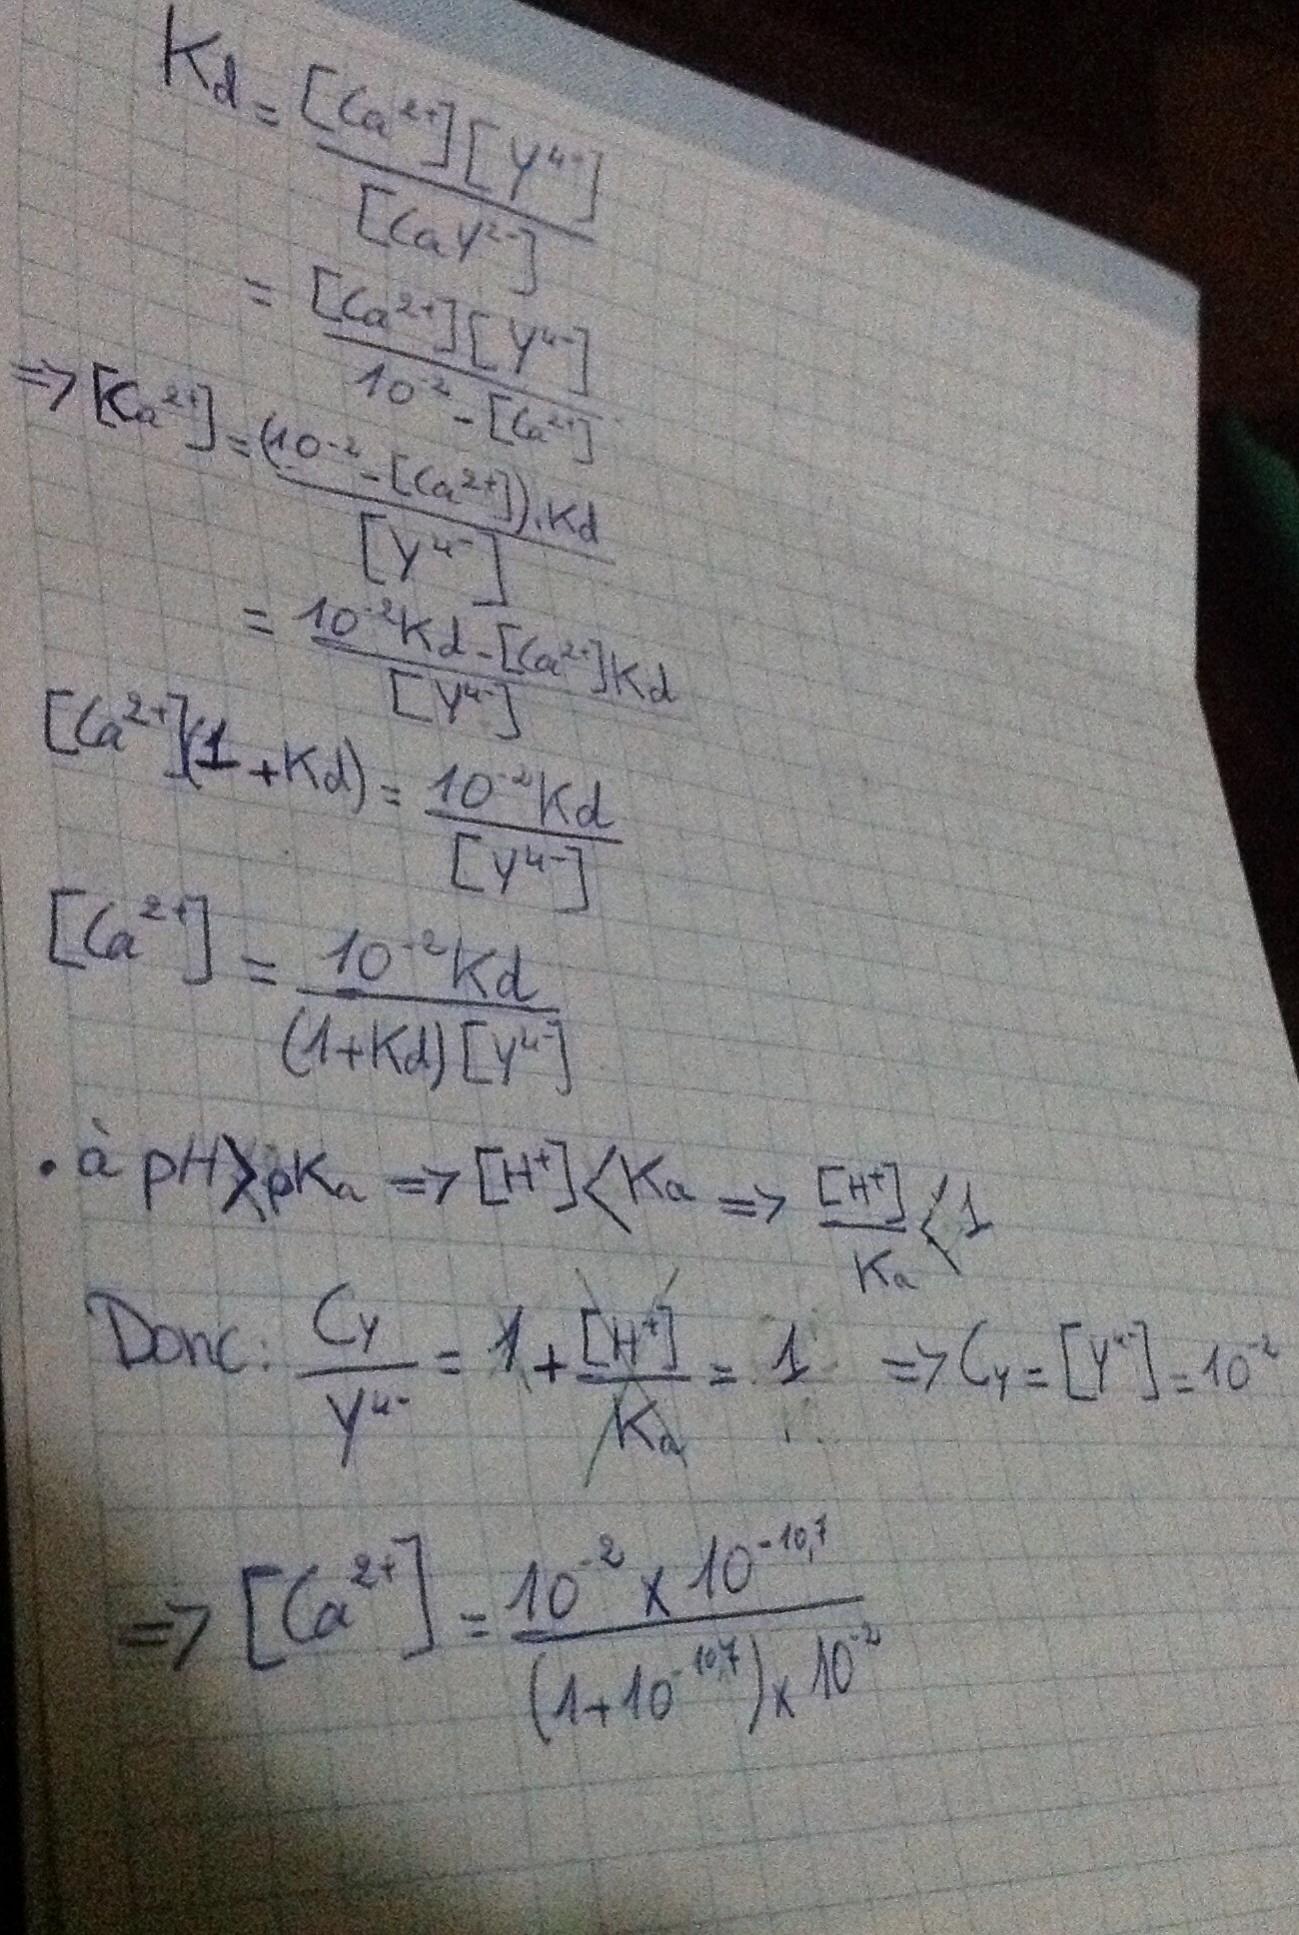 Kd = [Ca²⁺][Y⁴⁻] / [CaY²⁻]
= [Ca²⁺][Y⁴⁻] / 10⁻² - [Ca²⁺]
=> [Ca²⁺] = (10⁻² - [Ca²⁺]).Kd / [Y⁴⁻]
= 10⁻²Kd - [Ca²⁺]Kd / [Y⁴⁻]
[Ca²⁺](1 + Kd) = 10⁻²Kd / [Y⁴⁻]
[Ca²⁺] = 10⁻²Kd / (1+Kd)[Y⁴⁻]
• à pH > pKa => [H⁺] < Ka => [H⁺] / Ka < 1
Donc: Cy / Y⁴⁻ = 1 + [H⁺] / Ka = 1 => Cy = [Y⁴⁻] = 10⁻²
=> [Ca²⁺] = 10⁻² x 10⁻¹⁰,⁷ / (1+10⁻¹⁰,⁷) x 10⁻²